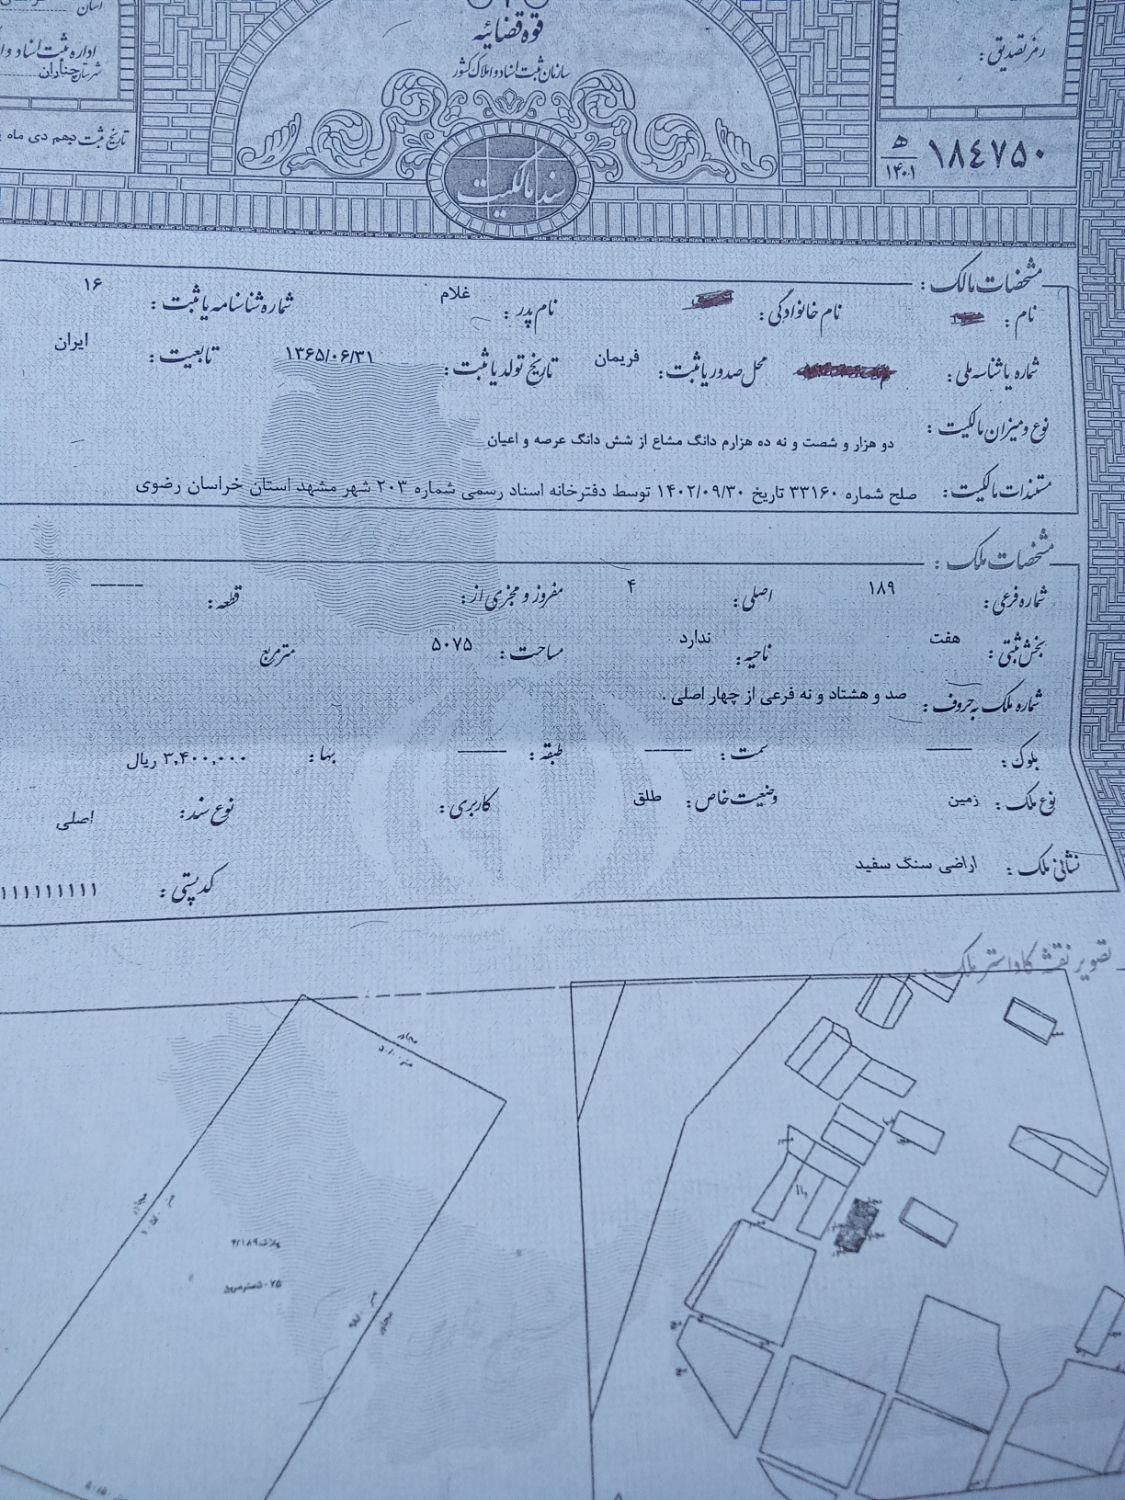 قوه قضائیه
سازمان ثبت اسناد و املاک کشور
سند مالکیت
رمز تصدیق :
۱۸۴۷۵۰ ه‍ ۱۴۰۱
استان
اداره ثبت اسناد و
شهرستان چناران
تاریخ ثبت دهم دی ماه
مشخصات مالک :
نام : نام خانوادگی : نام پدر : غلام شماره شناسنامه یا ثبت : ۱۶
شماره یا شناسه ملی : محل صدور یا ثبت : فریمان تاریخ تولد یا ثبت : ۱۳۶۵/۰۶/۳۱ تابعیت : ایران
نوع و میزان مالکیت : دو هزار و شصت و نه ده هزارم دانگ مشاع از شش دانگ عرصه و اعیان
مستندات مالکیت : صلح شماره ۳۳۱۶۰ تاریخ ۱۴۰۲/۰۹/۳۰ توسط دفترخانه اسناد رسمی شماره ۲۰۳ شهر مشهد استان خراسان رضوی
مشخصات ملک :
شماره فرعی : ۱۸۹ اصلی : ۴ مفروز و مجزی از : قطعه : ———
بخش ثبتی : هفت ناحیه : ندارد مساحت : ۵۰۷۵ مترمربع
شماره ملک به حروف : صد و هشتاد و نه فرعی از چهار اصلی .
بلوک : ——— سمت : ——— طبقه : ——— بها : ۳,۴۰۰,۰۰۰ ریال
نوع ملک : زمین وضعیت خاص : طلق کاربری : نوع سند : اصلی
نشانی ملک : اراضی سنگ سفید کد پستی : ۱۱۱۱۱۱۱۱۱۱
تصویر نقشه کاداستر ملک
مجاور
مجاور
پلاک ۴/۱۸۹
۵۰۷۵ مترمربع
مجاور